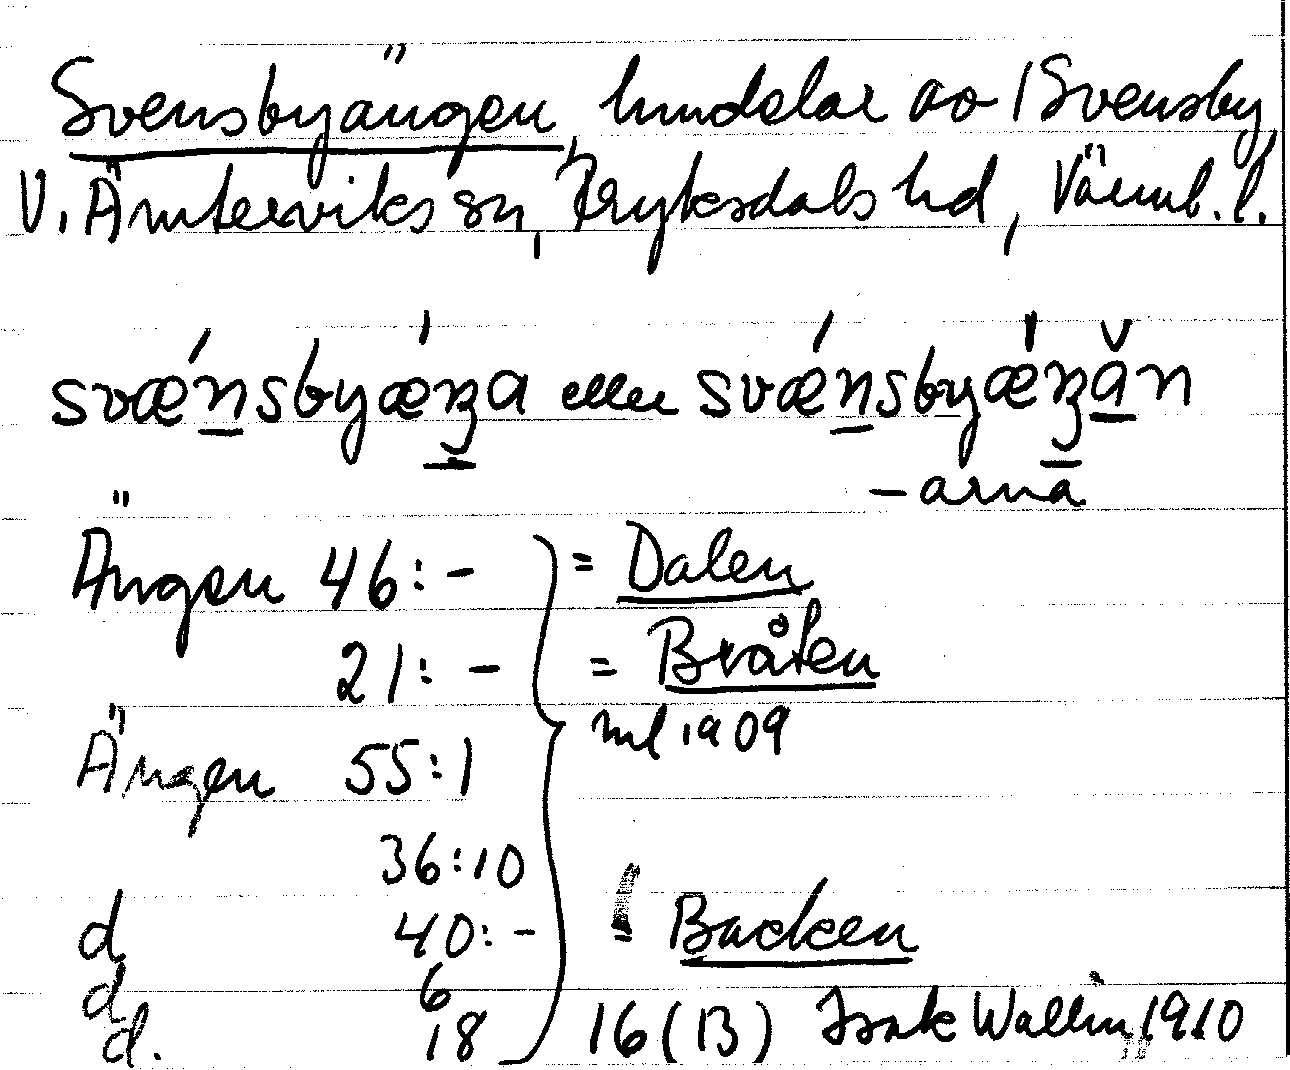 Svensbyängen, hmdelar av 1 Svensby,
V. Ämterviks sn, Fryksdals hd, Värml. l.
svǽnsbyǽŋa eller svǽnsbyǽŋăn
-arnā
Ängen 46:- = Dalen
21:- = Bråten
ml 1909
Ängen 55:1
36:10
d 40:- = Backen
d 6
d. 18 16 (B) Isak Wallin, 1910